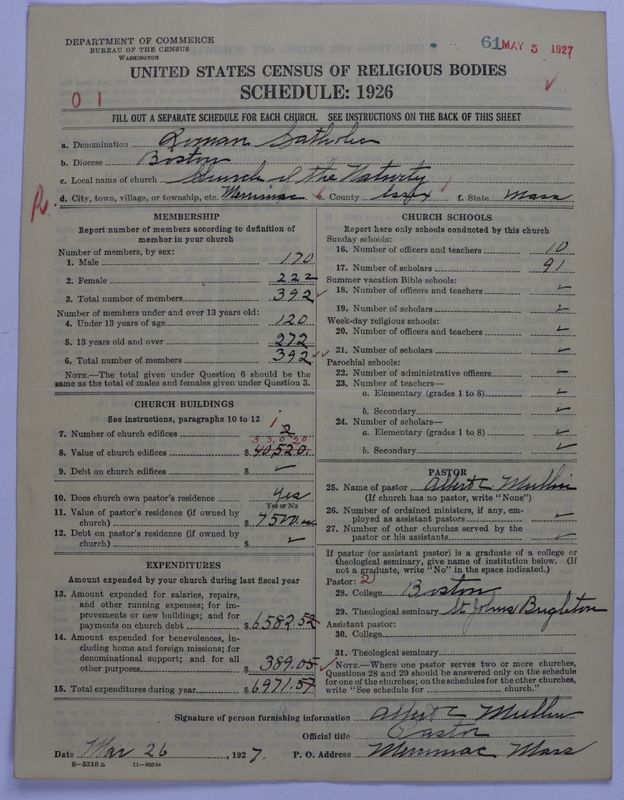 DEPARTMENT OF COMMERCE
BUREAU OF THE CENSUS
WASHINGTON
61 MAY 5 1927
UNITED STATES CENSUS OF RELIGIOUS BODIES
SCHEDULE: 1926
0 1
FILL OUT A SEPARATE SCHEDULE FOR EACH CHURCH. SEE INSTRUCTIONS ON THE BACK OF THIS SHEET
a. Denomination Roman Catholic
b. Diocese Boston
c. Local name of church Church of the Nativity
R. d. City, town, village, or township, etc. Merrimac e. County Essex f. State Mass
MEMBERSHIP
Report number of members according to definition of member in your church
Number of members, by sex:
1. Male 170
2. Female 222
3. Total number of members 392
Number of members under and over 13 years old:
4. Under 13 years of age 120
5. 13 years old and over 272
6. Total number of members 392
NOTE.—The total given under Question 6 should be the same as the total of males and females given under Question 3.
CHURCH BUILDINGS
See instructions, paragraphs 10 to 12
1
7. Number of church edifices 2
33,020
8. Value of church edifices $ 40,520.
9. Debt on church edifices $ ✓
10. Does church own pastor's residence Yes
Yes or No
11. Value of pastor's residence (if owned by church) $ 7500.
12. Debt on pastor's residence (if owned by church) $ ✓
EXPENDITURES
Amount expended by your church during last fiscal year
13. Amount expended for salaries, repairs, and other running expenses; for improvements or new buildings; and for payments on church debt $ 6582.52
14. Amount expended for benevolences, including home and foreign missions; for denominational support; and for all other purposes $ 389.05
15. Total expenditures during year $ 6971.57
CHURCH SCHOOLS
Report here only schools conducted by this church
Sunday schools:
16. Number of officers and teachers 10
17. Number of scholars 91
Summer vacation Bible schools:
18. Number of officers and teachers ✓
19. Number of scholars ✓
Week-day religious schools:
20. Number of officers and teachers ✓
21. Number of scholars ✓
Parochial schools:
22. Number of administrative officers ✓
23. Number of teachers—
a. Elementary (grades 1 to 8) ✓
b. Secondary ✓
24. Number of scholars—
a. Elementary (grades 1 to 8) ✓
b. Secondary ✓
PASTOR
25. Name of pastor Albert C. Mullin
(If church has no pastor, write "None")
26. Number of ordained ministers, if any, employed as assistant pastors ✓
27. Number of other churches served by the pastor or his assistants ✓
If pastor (or assistant pastor) is a graduate of a college or theological seminary, give name of institution below. (If not a graduate, write "No" in the space indicated.)
Pastor: 2
28. College Boston
29. Theological seminary St Johns Brighton
Assistant pastor:
30. College
31. Theological seminary
NOTE.—Where one pastor serves two or more churches, Questions 28 and 29 should be answered only on the schedule for one of the churches; on the schedules for the other churches, write "See schedule for church."
Signature of person furnishing information Albert C Mullin
Official title Pastor
Date Mar 26, 1927. P. O. Address Merrimac Mass
8-5318a